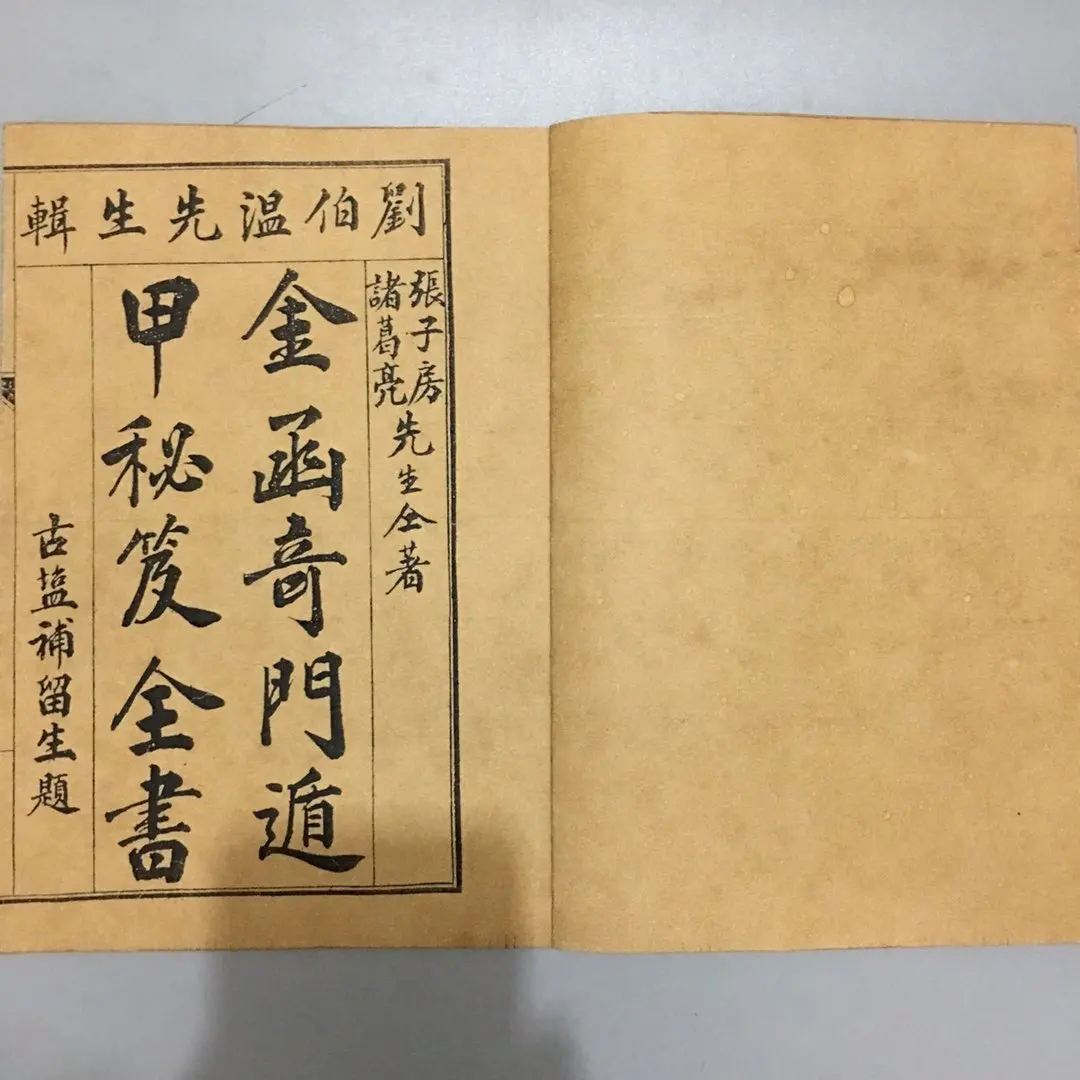 劉伯溫先生輯
張子房
諸葛亮
先生仝著
金函奇門遁
甲秘笈全書
古盐補留生題